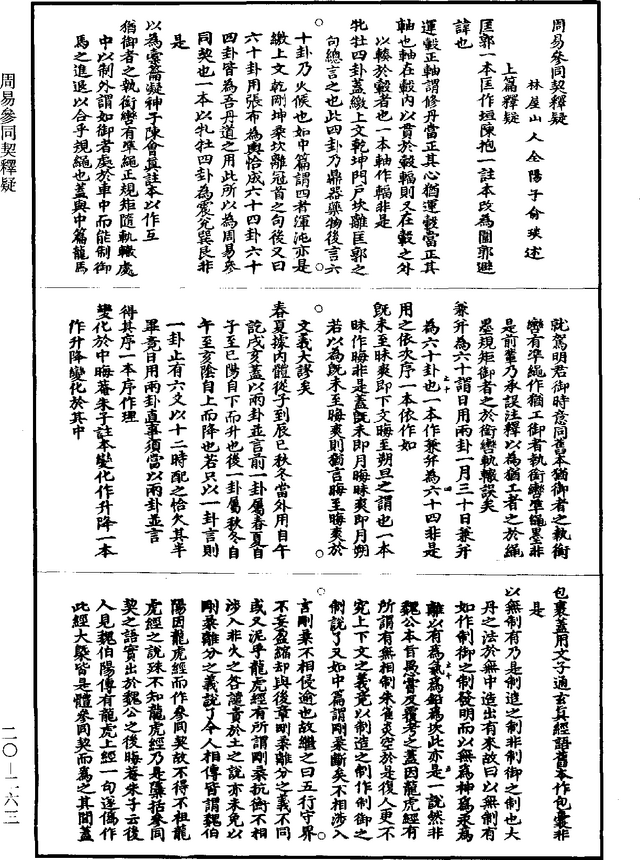 周易參同契釋疑
林屋山人全陽子俞琰述
上篇釋疑
匡郭一本匡作垣陳抱一註本改為圍郭避
諱也
運轂正軸謂修丹當正其心猶運轂當正其
軸也軸在轂內以貫於轂輻則又在轂之外
以輳於轂者也一本軸作輻非是
牝牡四卦蓋繳上文乾坤門戶坎離匡郭之
句總言之也此四卦乃鼎器藥物後言六
十卦乃火候也如中篇謂四者渾沌亦是
繳上文乾剛坤柔坎離冠首之句後又曰
六十卦用張布為輿恰成六十四卦六十
四卦皆為吾丹道之用此所以為周易參
同契也一本以牝牡四卦為震兌巽艮非
是
以為橐籥凝神子陳會真註本以作互
猶御者之執銜轡有準繩正規矩隨軌轍處
中以制外謂如御者處於車中而能制御
馬之進退以合乎規繩也蓋與中篇龍馬
就駕明君御時意同舊本猶御者之執銜
轡有準繩作猶工御者執銜轡準繩墨非
是前輩乃承誤註釋以為猶工者之於繩
墨規矩御者之於銜轡軌轍誤矣
兼并為六十謂日用兩卦一月三十日兼并
為六十卦也一本作兼并為六十四非是
用之依次序一本依作如
既未至昧爽即下文晦至朔旦之謂也一本
昧作晦非是蓋既未即月晦昧爽即月朔
若以為既未至晦爽則猶言晦至晦爽於
文義大謬矣
春夏據內體從子到辰巳秋冬當外用自午
訖戌亥蓋以兩卦並言前一卦屬春夏自
子至巳陽自下而升也後一卦屬秋冬自
午至亥陰自上而降也若只以一卦言則
一卦止有六爻以十二時配之恰欠其半
畢竟日用兩卦直事須當以兩卦並言
得其序一本序作理
變化於中晦菴朱子註本變化作升降一本
作升降變化於其中
包裹蓋用文子通玄真經語舊本作包囊非
是
以無制有乃是制造之制非制御之制也大
丹之法於無中造出有來故曰以無制有
如作制御之制發明而以無為神為汞為
離以有為氣為鉛為坎此亦是一說然非
魏公本旨愚嘗反覆考之蓋因龍虎經有
所謂有無相制朱雀炎空於是後人更不
究上下文之義竟以制造之制作制御之
制說了又如中篇謂剛柔斷矣不相涉入
言剛柔不相侵逾也故繼之曰五行守界
不妄盈縮却與後章剛柔離分之義不同
或又泥乎龍虎經有所謂剛柔抗衡不相
涉入非火之咎譴責於土之說亦未免以
剛柔離分之義說了今人相傳皆謂魏伯
陽因龍虎經而作參同契故不得不祖龍
虎經之說殊不知龍虎經乃是檃括參同
契之語實出於魏公之後晦菴朱子云後
人見魏伯陽傳有龍虎上經一句遂偽作
此經大槩皆是體參同契而為之其間蓋
周易參同契釋疑
二〇—二六三